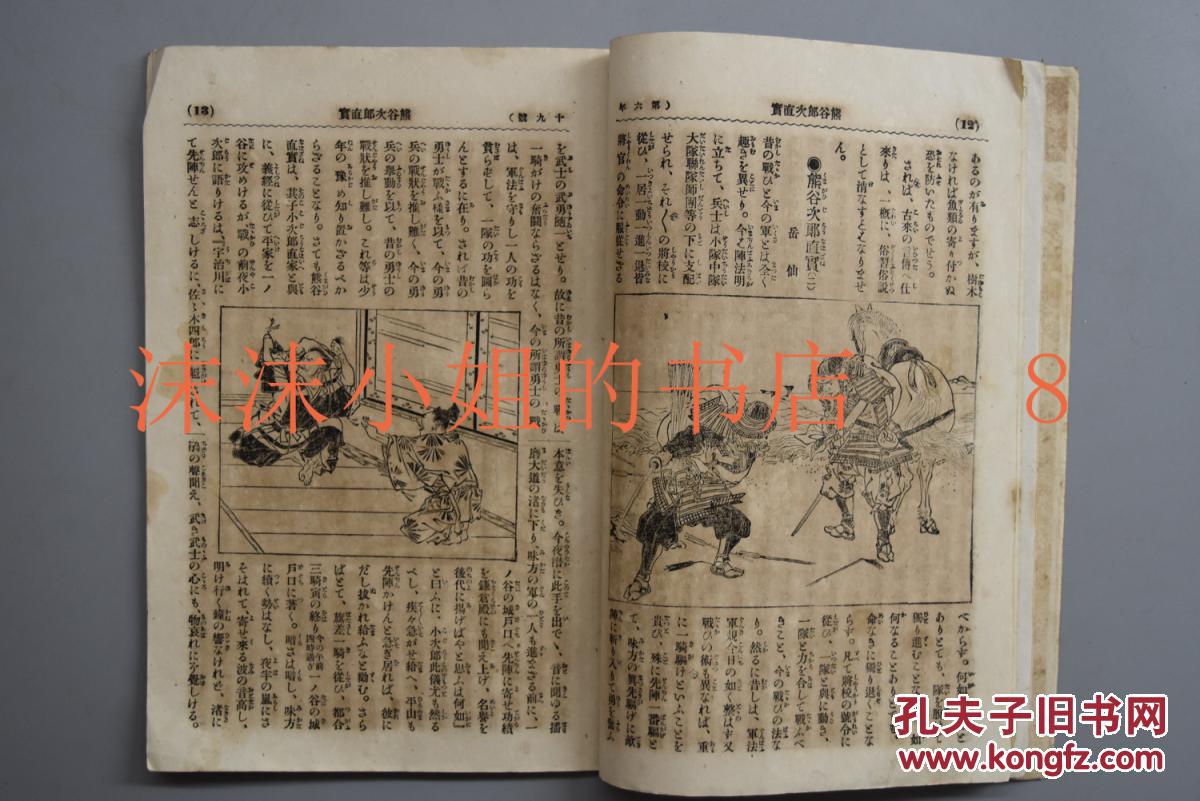 (12)
熊谷次郎直實
(第六年
あるのが有りますが、樹木
なければ魚類の寄り付かぬ
恐を防いたものでせう。
されば、古來の言傳へ仕
來りは、一概に、俗習俗說
として消なすことなりませ
ん。
●熊谷次郎直實(二)
岳仙
昔の戰ひと今の軍とは全く
趣きを異せり。今は陣法明
に立ちて、兵士は小隊中隊
大隊聯隊師團等の下に支配
せられ、それ〳〵の將校に
從ひ、一居一動一進一退皆
將官の命令に服從せざる
べからず。何如
ありとても、隊を
獨り進むことな
何なることあり
命なきに獨り退くことな
らず。凡て將校の號令に
從ひ、一隊と與に動き、
一隊と力を合して戰ふべ
きこと、今の戰ひの法な
り。然るに昔しは、軍法
軍規今日の如く整はす又
戰ひの術も異なれば、重
に一騎驅けといふことを
貴び、殊に先陣一番驅と
て、味方の眞先驅けに敵
陣に斬り入りて勇を奮ふ
十九號)
熊谷次郎直實
(13)
を武士の武勇隨一とせり。故に昔の所謂勇士の戰は、
一騎がけの奮鬪ならざるはなく、今の所謂勇士の戰
は、軍法を守りし一人の功を
貪らずして、一隊の功を圖ら
んとするに在り。されば昔の
勇士が戰ふ樣を以て、今の勇
兵の戰狀を推し難く、今の勇
兵の擧動を以て、昔の勇士の
戰狀を推し難し。これ等は少
年の、豫め知り置かざるべか
らざることなり。さても熊谷
直實は、其子小次郎直家と與
に、義經に從ひて平家を一ノ
谷に攻めけるが、戰の前夜小
次郎に語りけるは、『宇治川に
て先陣せんと志しけるに、佐々木四郎に
本意を失ひき。今夜潜に此手を出で、音に聞ゆる播
磨大道の渚に下り、味方の軍の一人も進まざる前に、一
ノ谷の城戸口へ先陣に寄せ功績
を鎌倉殿にも聞え上げ、名譽を
後代に揚げばやと思ふは何如』
と曰ふに、小次郎此儀尤も然る
べし、疾く急がせ給へ、平山も
先陣かけんと急ぎ居れば、彼に
だし拔かれ給ふなと勸む。さら
ばとて、旗差一騎を從ひ、都合
三騎寅の終り今の午前四時過ぎ一ノ谷の城
戸口に著く。暗さは暗し、味方
に續く勢はなし、夜半の嵐にさ
そはれて、寄せ來る波の音高し、
明け行く鐘の響なけれど、渚に
鳴の聲聞え、武き武士の心にも、物哀れにぞ覺しける。
沫沫小姐的书店 8
孔夫子旧书网
www.kongfz.com